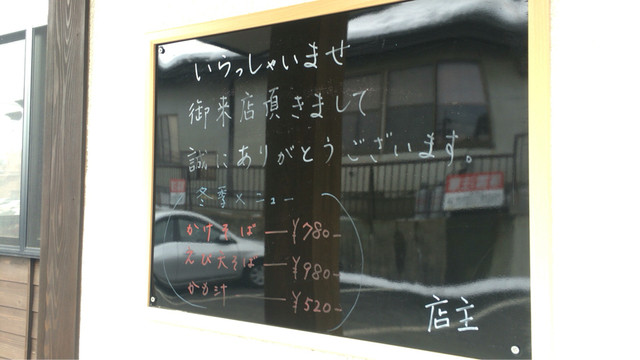 いらっしゃいませ
御来店頂きまして
誠にありがとうございます。
冬季メニュー
かけそば ― ¥780-
えび天そば ― ¥980-
かも汁 ― ¥520-
店主